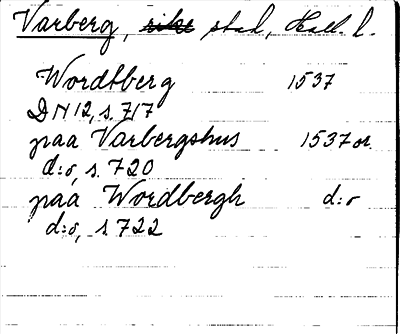 Varberg, stad, Hall. l.
Wordtberg 1537
DN 12, s. 717
paa Varbergshus 1537 or.
d:o, s. 720
paa Wordbergh d:o
d:o, s. 722